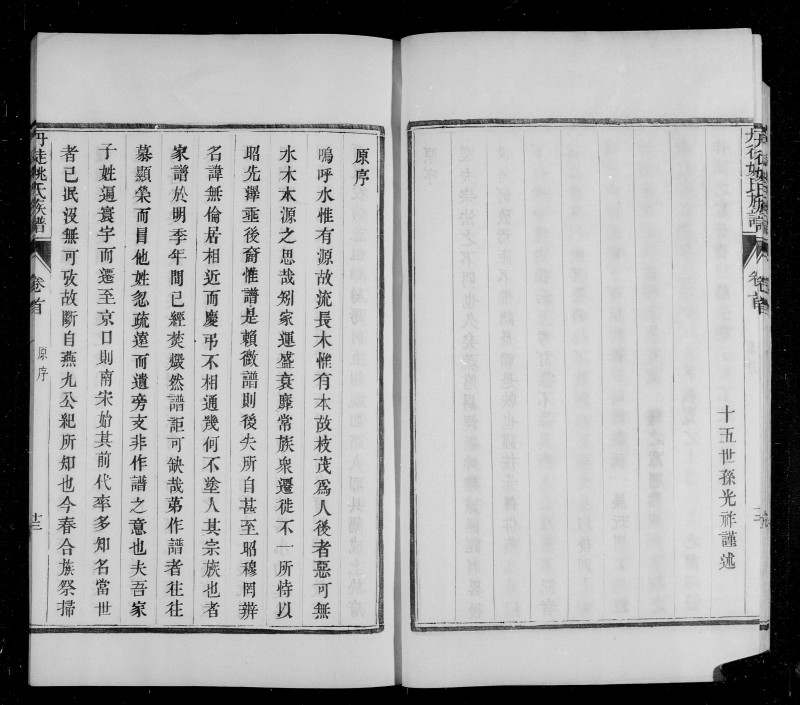 十五世孫光祚謹述
丹徒姚氏族譜
卷首
原序
嗚呼水惟有源故流長木惟有本故枝茂爲人後者惡可無
水木本源之思哉矧家運盛衰靡常族衆遷徙不一所恃以
昭先澤垂後裔惟譜是賴微譜則後失所自甚至昭穆罔辨
名諱無倫居相近而慶弔不相通幾何不塗人其宗族也者
家譜於明季年間已經焚燬然譜詎可缺哉第作譜者往往
慕顯榮而冒他姓忽疏遠而遺旁支非作譜之意也夫吾家
子姓遍寰宇而遷至京口則南宋始其前代率多知名當世
者已泯沒無可攷故斷自燕九公紀所知也今春合族祭掃
丹徒姚氏族譜
卷首
原序
十三